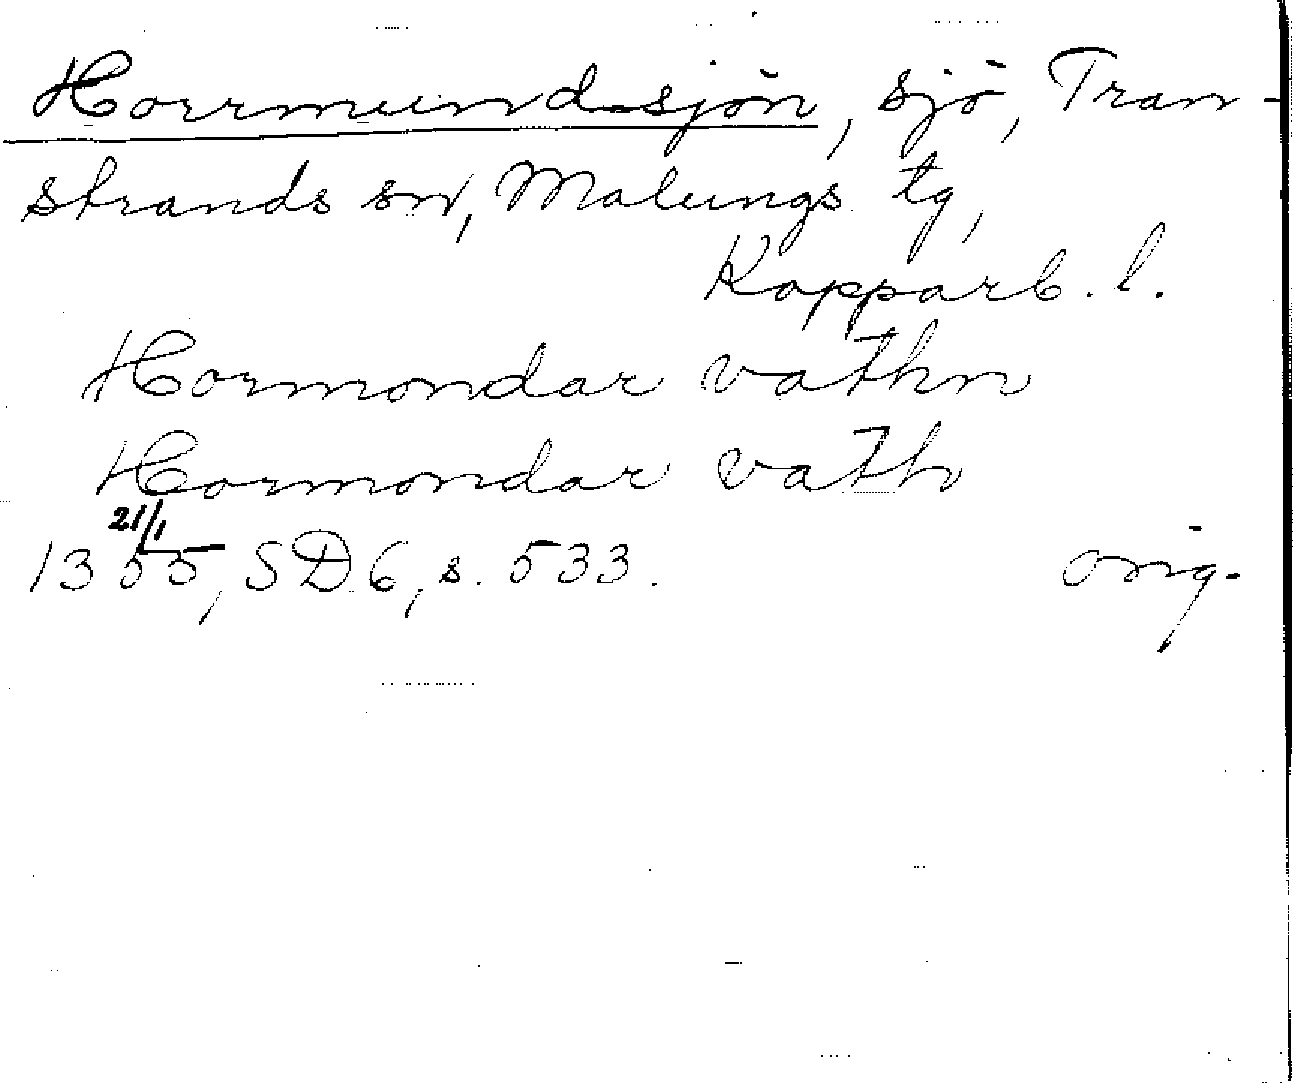 Horrmundsjön, sjö, Tran-
strands sn, Malungs tg,
Kopparb. l.
Hormondar vathn
Hormondar vath
21/1
1355, SD 6, s. 533. orig.